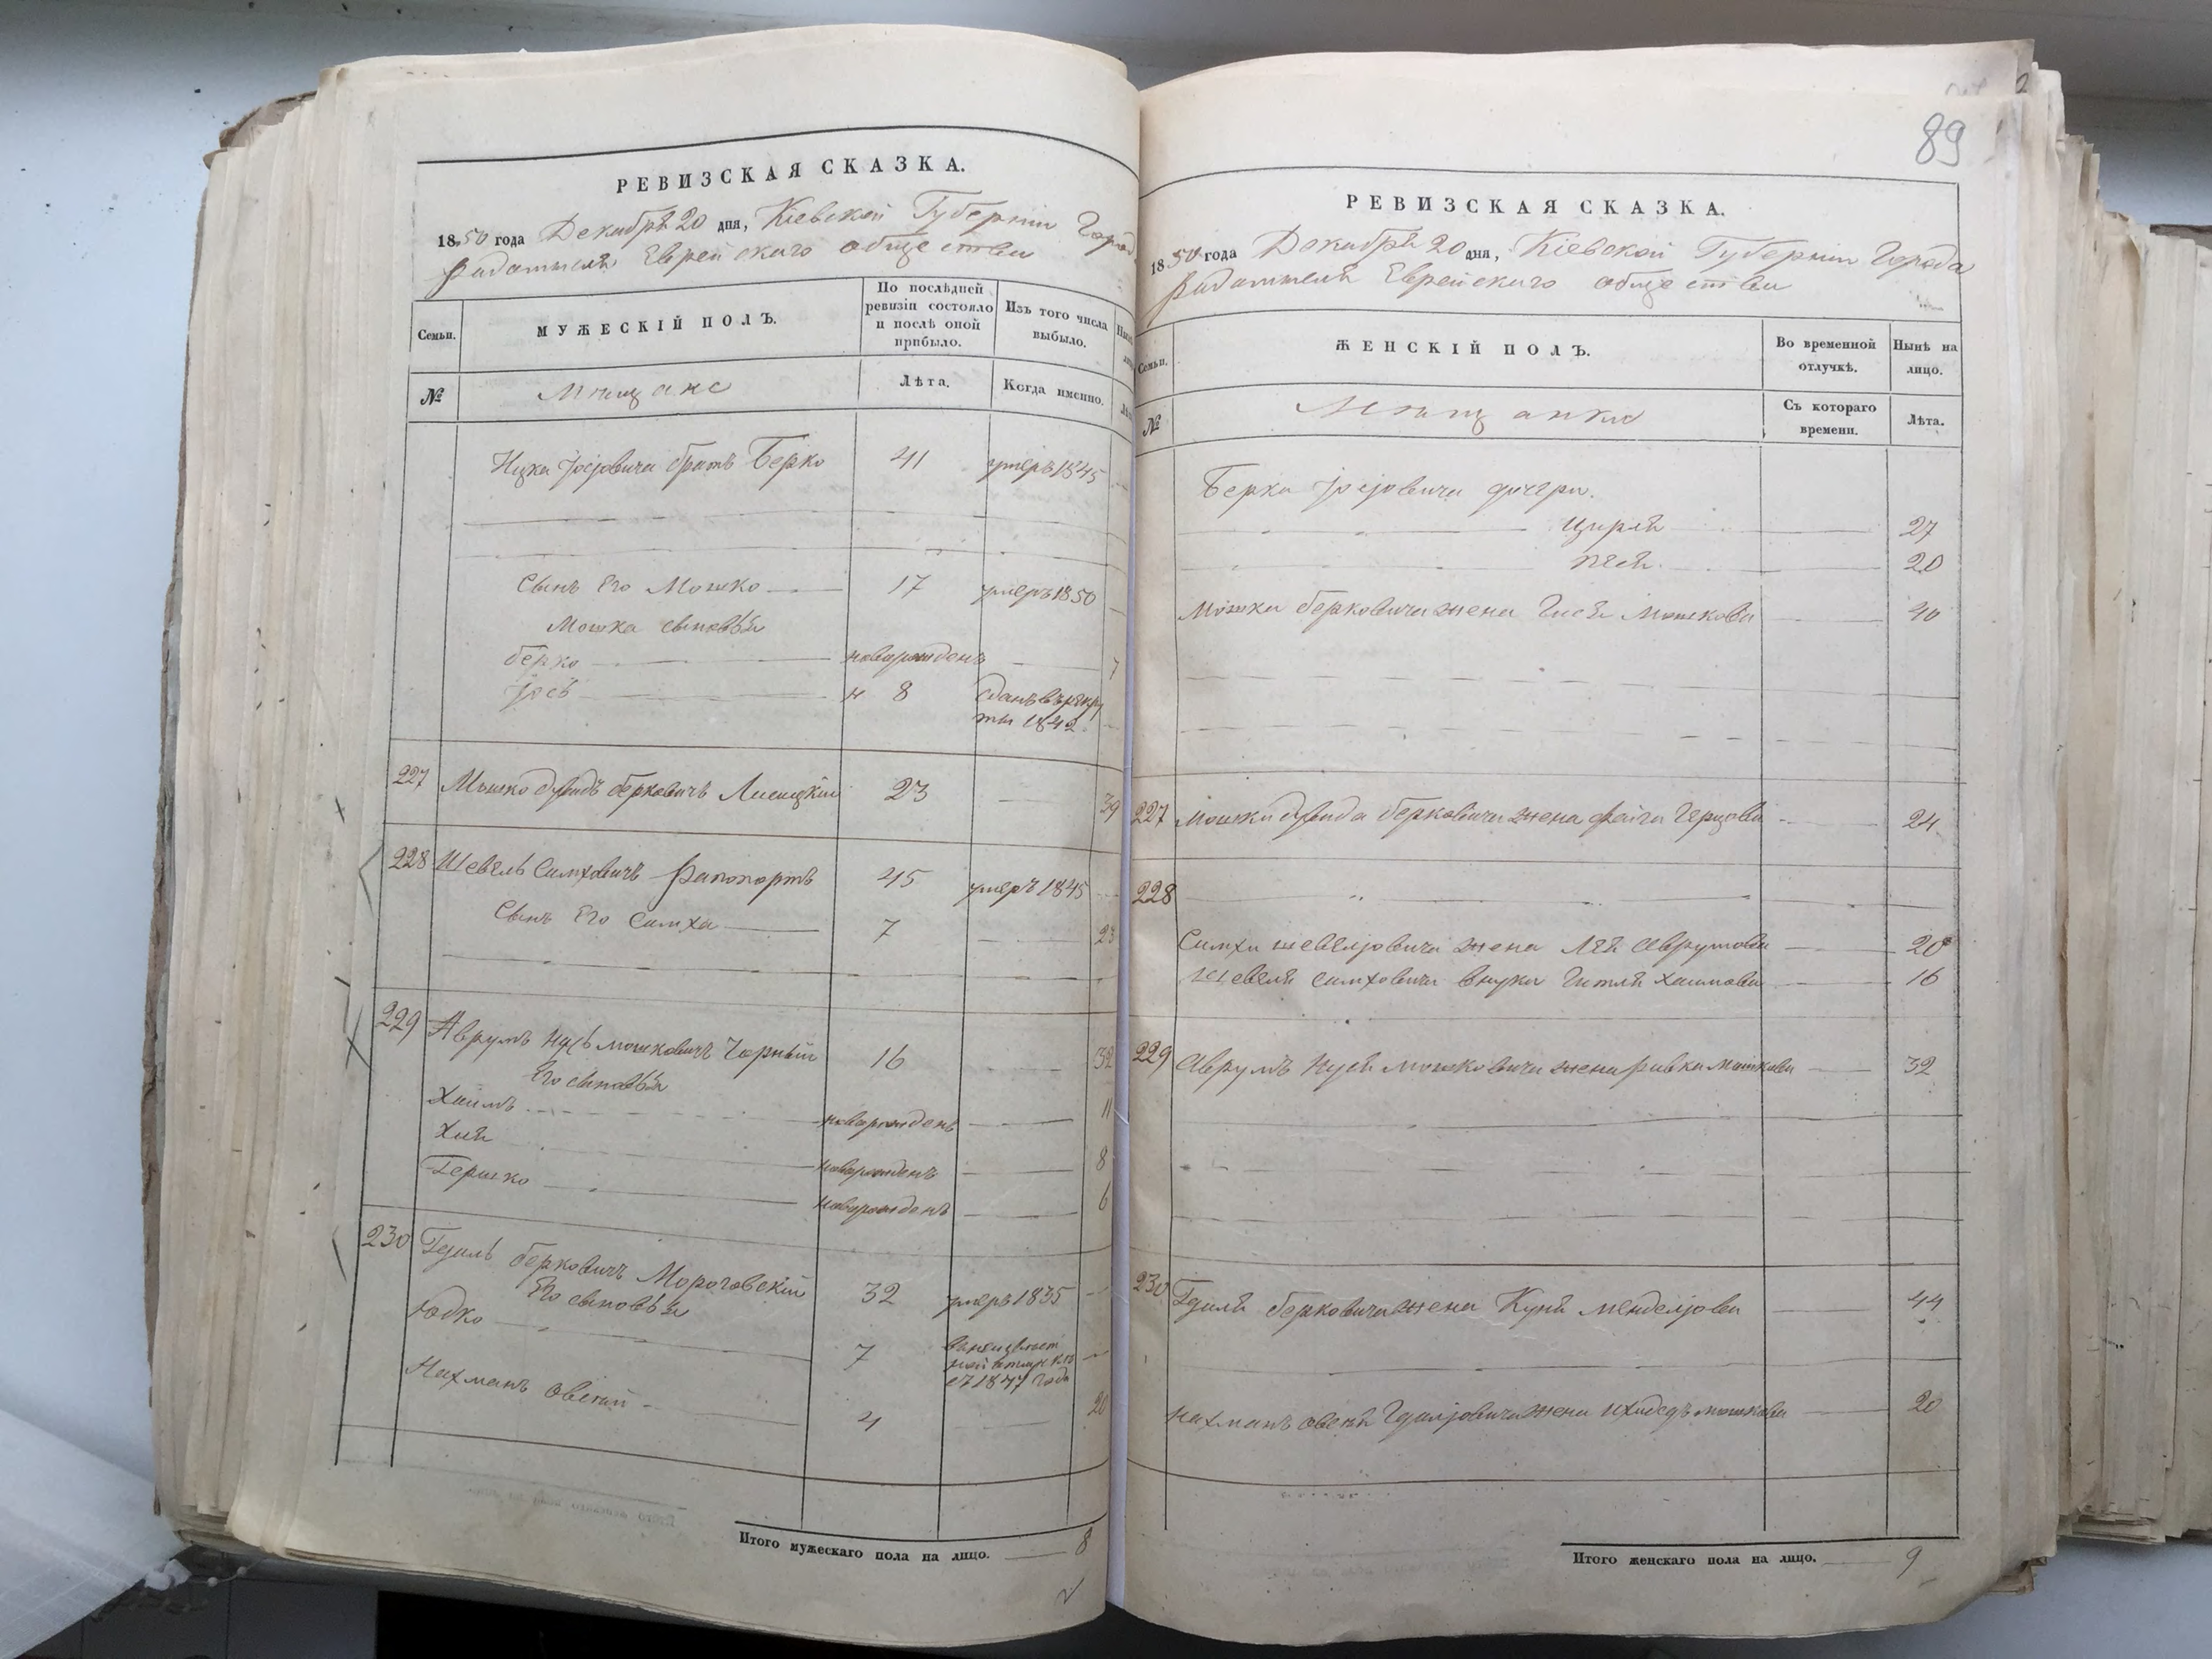 РЕВИЗСКАЯ СКАЗКА.
1850 года Декабря 20 дня, Кіевской Губерніи Город
Радомысля Еврейскаго общества
Семьи.
МУЖЕСКІЙ ПОЛЪ.
По послѣдней ревизіи состояло и послѣ оной прибыло.
Изъ того числа выбыло.
№
Мѣщане
Лѣта.
Когда именно.
Ицка Іосіовича братъ Берко 41 умеръ 1845
Сынъ Его Мошко 17 умеръ 1850
Мошка сыновья
Берко новорожденъ 7
Іось н 8 Сданъ въ рекру
ты 1842
227 Мошко Дувидъ Берковичъ Лисицкій 23 39
228 Шевель Симховичъ Рапопортъ 45 умеръ 1845
Сынъ Его Симха 7 23
229 Аврумъ Нусь Мошковичъ Чорный 16 32
Его сыновья
Хаимъ новорожденъ 11
Хия новорожденъ 8
Гершко новорожденъ 6
230 Гдаль Берковичъ Мороговскій 32 умеръ 1835
Его сыновья
Юдко 7 въ неизвѣст
ной отлучкѣ
съ 1847 года
Нахманъ Овсей 4 20
Итого мужескаго пола на лицо. 8
89
РЕВИЗСКАЯ СКАЗКА.
1850 года Декабря 20 дня, Кіевской Губерніи Города
Радомысля Еврейскаго общества
Семьи.
ЖЕНСКІЙ ПОЛЪ.
Во временной отлучкѣ.
Нынѣ на лицо.
№
Мѣщанки
Съ котораго времени.
Лѣта.
Берка Іосіовича дочери.
Цирля 27
Песя 20
Мошка Берковича жена Гися Мошкова 40
227 Мошка Дувида Берковича жена Файга Герцова 24
228
Симхи Шевеліовича жена Лея Аврумова 20
Шевеля Симховича внука Гитля Хаимова 16
229 Аврумъ Нуся Мошковича жена Ривка Мошкова 32
230 Гдаля Берковича жена Куня Менделіова 44
Нахманъ Овсея Гдаліовича жена Ихудедъ Мошкова 20
Итого женскаго пола на лицо. 9